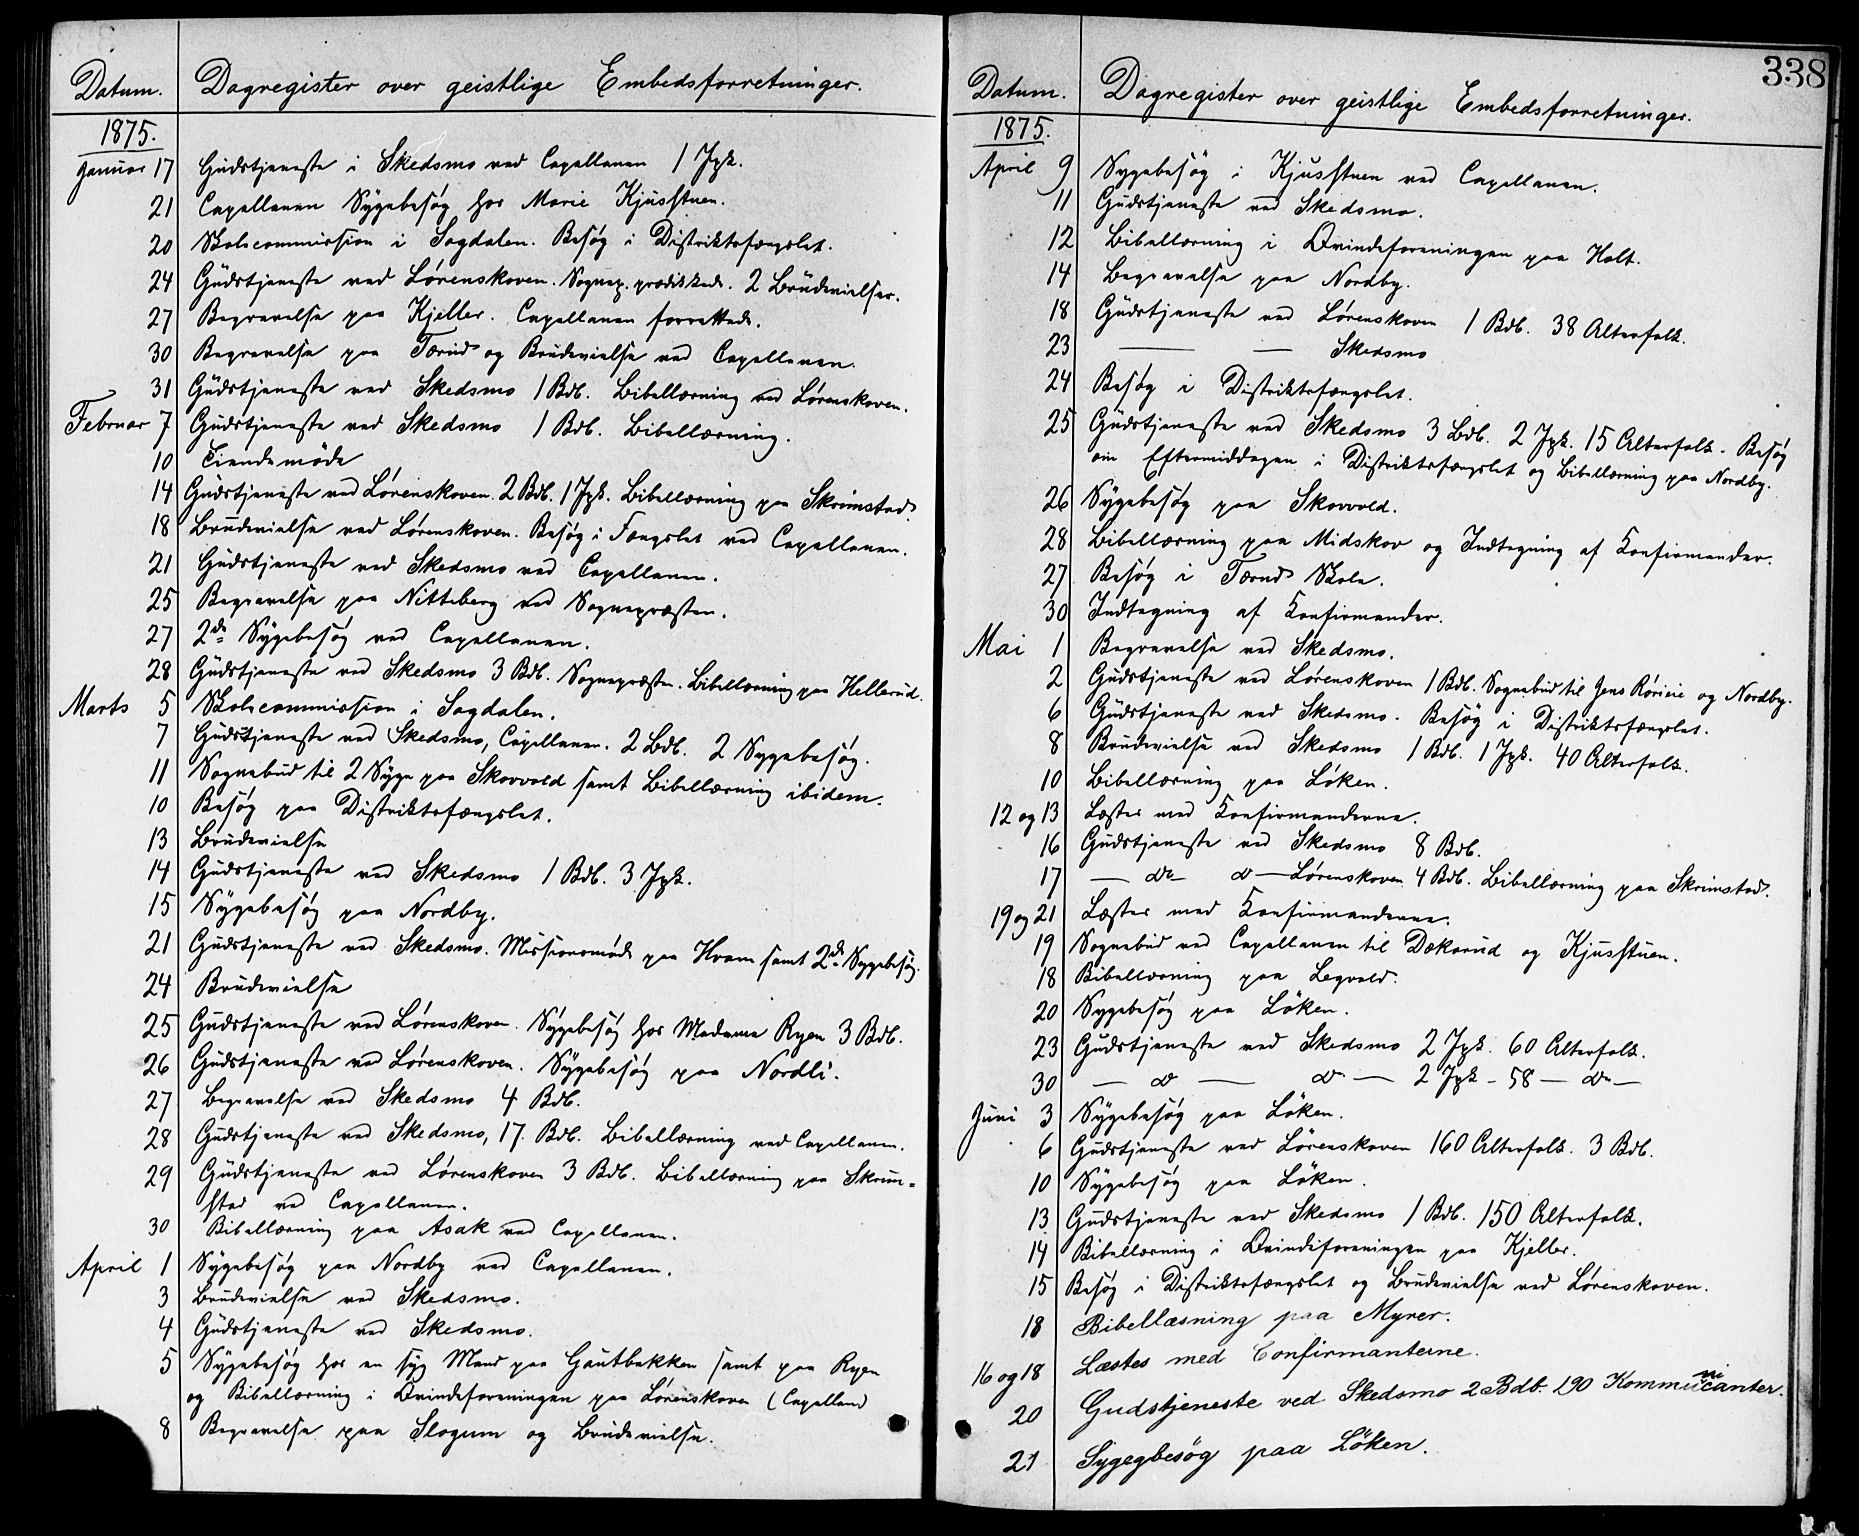 Datum. Dagregister over geistlige Embedsforretninger.
1875.
Januar 17 Gudstjeneste i Skedsmo ved Capellanen 1 Jgk.
21 Capellanen Sygebesøg hos Marie Kjusstuen.
20 Skolecommission i Sagdalen. Besøg i Distriktsfængslet.
24 Gudstjeneste ved Lørenskoven. Sognep. prædikkede. 2 Brudevielser.
27 Begravelse paa Kjeller. Capellanen forrettede.
30 Begravelse paa Tærud og Brudevielse ved Capellanen.
31 Gudstjeneste ved Skedsmo 1 Bdb. Bibellæsning ved Lørenskoven.
Februar 7 Gudstjeneste ved Skedsmo 1 Bdb. Bibellæsning.
10 Tiendemøde
14 Gudstjeneste ved Lørenskoven. 2 Bdb. 1 Jgk. Bibellæsning paa Skrimstad.
18 Brudevielse ved Lørenskoven. Besøg i Fængslet ved Capellanen.
21 Gudstjeneste ved Skedsmo ved Capellanen.
25 Begravelse paa Nitteberg ved Sognepræsten.
27 2de Sygebesøg ved Capellanen.
28 Gudstjeneste ved Skedsmo 3 Bdb. Sognepræsten. Bibellæsning paa Hellerud.
Marts 5 Skolecommission i Sagdalen.
7 Gudstjeneste ved Skedsmo, Capellanen. 2 Bdb. 2 Sygebesøg.
11 Sognebud til 2 Syge paa Skovvold samt Bibellæsning ibidem.
10 Besøg paa Distriktsfængslet.
13 Brudevielse
14 Gudstjeneste ved Skedsmo 1 Bdb. 3 Jgk.
15 Sygebesøg paa Nordby.
21 Gudstjeneste ved Skedsmo. Missionsmøde paa Hvam samt 2de Sygebesøg.
24 Brudevielse
25 Gudstjeneste ved Lørenskoven. Sygebesøg hos Madame Ryen 3 Bdb.
26 Gudstjeneste ved Lørenskoven. Sygebesøg paa Nordli.
27 Begravelse ved Skedsmo 4 Bdb.
28 Gudstjeneste ved Skedsmo, 17. Bdb. Bibellæsning ved Capellanen.
29 Gudstjeneste ved Lørenskoven 3 Bdb. Bibellæsning paa Skrim-
stad ved Capellanen.
30 Bibellæsning paa Asak ved Capellanen.
April 1 Sygebesøg paa Nordby ved Capellanen.
3 Brudevielse ved Skedsmo.
4 Gudstjeneste ved Skedsmo.
5 Sygebesøg hos en syg Mand paa Gautbakken samt paa Ryen
og Bibellæsning i Qvindeforeningen paa Lørenskoven (Capelland
8 Begravelse paa Slogum og Brudevielse.
338
Datum. Dagregister over geistlige Embedsforretninger.
1875.
April 9 Sygebesøg i Kjusstuen ved Capellanen.
11 Gudstjeneste ved Skedsmo.
12 Bibellæsning i Qvindeforeningen paa Holt.
14 Begravelse paa Nordby.
18 Gudstjeneste ved Lørenskoven 1 Bdb. 38 Alterfolk.
23 — — Skedsmo
24 Besøg i Distriktsfængslet.
25 Gudstjeneste ved Skedsmo 3 Bdb. 2 Jgk. 15 Alterfolk. Besøg
om Eftermiddagen i Distriktsfængslet og Bibellæsning paa Nordby.
26 Sygebesøg paa Skovvold.
28 Bibellæsning paa Midskov og Indtegning af Konfirmander.
27 Besøg i Tærud Skole.
30 Indtegning af Konfirmander.
Mai 1 Begravelse ved Skedsmo.
2 Gudstjeneste ved Lørenskoven 1 Bdb. Sognebud til Jens og Nordby.
6 Gudstjeneste ved Skedsmo. Besøg i Distriktsfængslet.
8 Brudevielse ved Skedsmo 1 Bdb. 1 Jgk. 40 Alterfolk.
10 Bibellæsning paa Løken.
12 og 13 Læstes med Konfirmanderne.
16 Gudstjeneste ved Skedsmo 8 Bdb.
17 — do — do — Lørenskoven 4 Bdb. Bibellæsning paa Skrimstad.
19 og 21 Læstes med Konfirmanderne.
19 Sognebud ved Capellanen til Dækarud og Kjusstuen.
18 Bibellæsning paa Legvold.
20 Sygebesøg paa Löken.
23 Gudstjeneste ved Skedsmo 2 Jgk. 60 Alterfolk.
30 — do — do — 2 Jgk - 58 — do —
Juni 3 Sygebesøg paa Löken.
6 Gudstjeneste ved Lörenskoven 160 Alterfolk. 3 Bdb.
10 Sygebesøg paa Löken.
13 Gudstjeneste ved Skedsmo 1 Bdb. 150 Alterfolk.
14 Bibellæsning i Qvindeforeningen paa Kjeller.
15 Besøg i Distriktsfængslet og Brudevielse ved Lörenskoven.
18 Bibellæsning paa Myrer.
16 og 18 Læstes med Confirmanterne.
20 Gudstjeneste ved Skedsmo 2 Bdb. 190 Kommunicanter.
21 Sygegbesøg paa Löken.